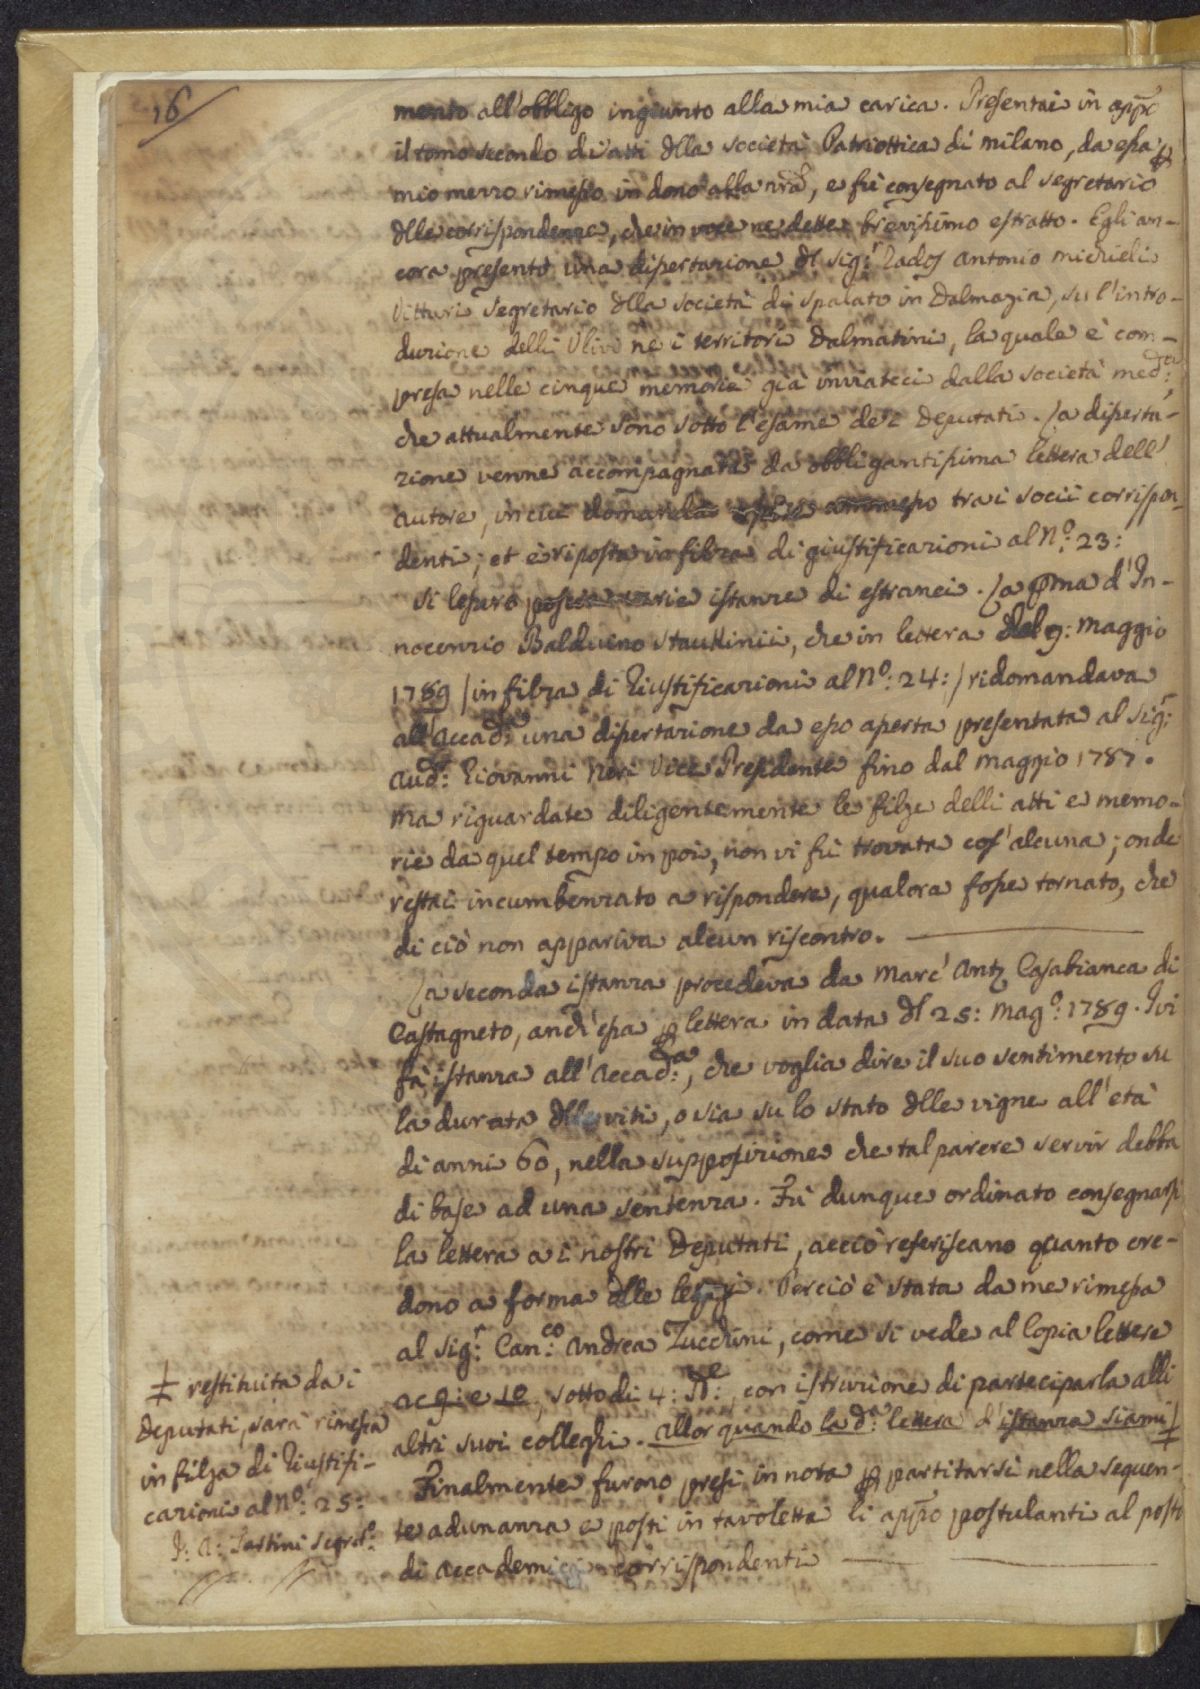 16
mento all'obbligo ingiunto alla mia carica. Presentai in app.o
il tomo secondo di'atti dlla società Patriottica di Milano, da essa p
mio mezzo rimesso in dono alla nrã, e fù consegnato al segretario
dlle corrispondenze, che in voce ne dette brevissimo estratto. Egli an-
cora presentò una dissertazione dl Sig.r Rados Antonio Michieli
Vitturi Segretario dlla società di Spalato in Dalmazia, su l'intro-
duzione delli Ulivi ne i territori Dalmatini, la quale è com-
presa nelle cinque memorie già inviateci dalla società med.ma
che attualmente sono sotto l'esame de i Deputati. La disserta-
zione venne accompagnata da obbligantissima lettera dell'
autore, in cui domanda ammesso tra i socii corrispon-
denti; et è riposta in filza di giustificazioni al N.o 23:
Si lessero poscia varie istanze di estranei. La pma d'In-
nocenzio Balduino Stautinii, che in lettera del 9: Maggio
1789 /in filza di Giustificazioni al N.o: 24:/ ridomandava
all'Accad.a: una dissertazione da esso aperta presentata al Sig.r:
Aud.e: Giovanni Neri Vice Presidente fino dal Maggio 1787.
Ma riguardate diligentemente le filze delli atti e memo-
rie da quel tempo in poi, non vi fù trovata cos'alcuna; onde
restai incumbenzato a rispondere, qualora fosse tornato, che
di ciò non appariva alcun riscontro.
La seconda istanza procedeva da Marc' Ant. Casabianca di
Castagneto, anch'essa p lettera in data dl 25: Mag.o: 1789. Ivi
fà istanza all'Accad.a:, che voglia dire il suo sentimento su
la durata dlle viti, o sia su lo stato dlle vigne all'età
di anni 60, nella supposizione che tal parere servir debba
di base ad una sentenza. Fù dunque ordinato consegnarsi
la lettera a i nostri Deputati, acciò referiscano quanto cre-
dono a forma dlle leggi. Perciò è stata da me rimessa
al Sig.r: Can.co: Andrea Zucchini, come si vede al Copia lettere
a c 9: e 10, sotto di 4: con istruzione di parteciparla alli
altri suoi colleghi. Allor quando la d.a lettera d'istanza siami ‡
Finalmente furono presi in nota p partitarsi nella sequen-
te adunanza e posti in tavoletta li app.o postulanti al posto
di accademici corrispondenti
‡ restituita da i
Deputati, sarà rimessa
in filza di Giustifi-
cazioni al N.o: 25:
G: A: Sartini Segret.o